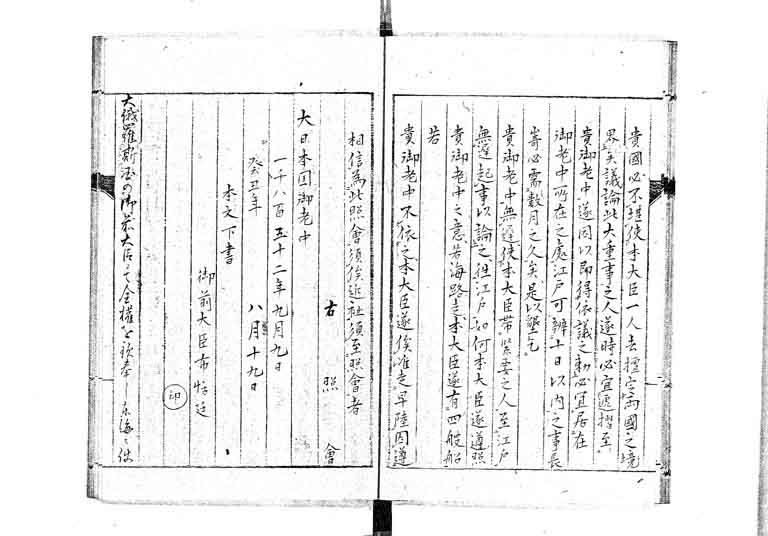 貴國必不獨使本大臣一人去擅定両國之境
界矣議論此大重事之人遂時必宜遞摺至
貴御老中遂因以即得依議之勅必宜居在
御老中所在之處江戸可辨十日以内之事長
崎必需数月之久矣是以懇乞
貴御老中無遲使本大臣帯緊要之人至江戸
無遲起事以論之往江戸如何本大臣遂遵照
貴御老中之意若海路走本大臣遂有四艘船
若
貴御老中不依之本大臣遂俟准走早陸因遵
相信為此照會須俟近祉須至照會者
右照會
大日本国御老中
一千八百五十二年九月九日
癸丑年 八月十九日
本文下書
御前大臣布恬廷
印
大俄羅斯国の御前大臣にて全権を欽奉し東海に使